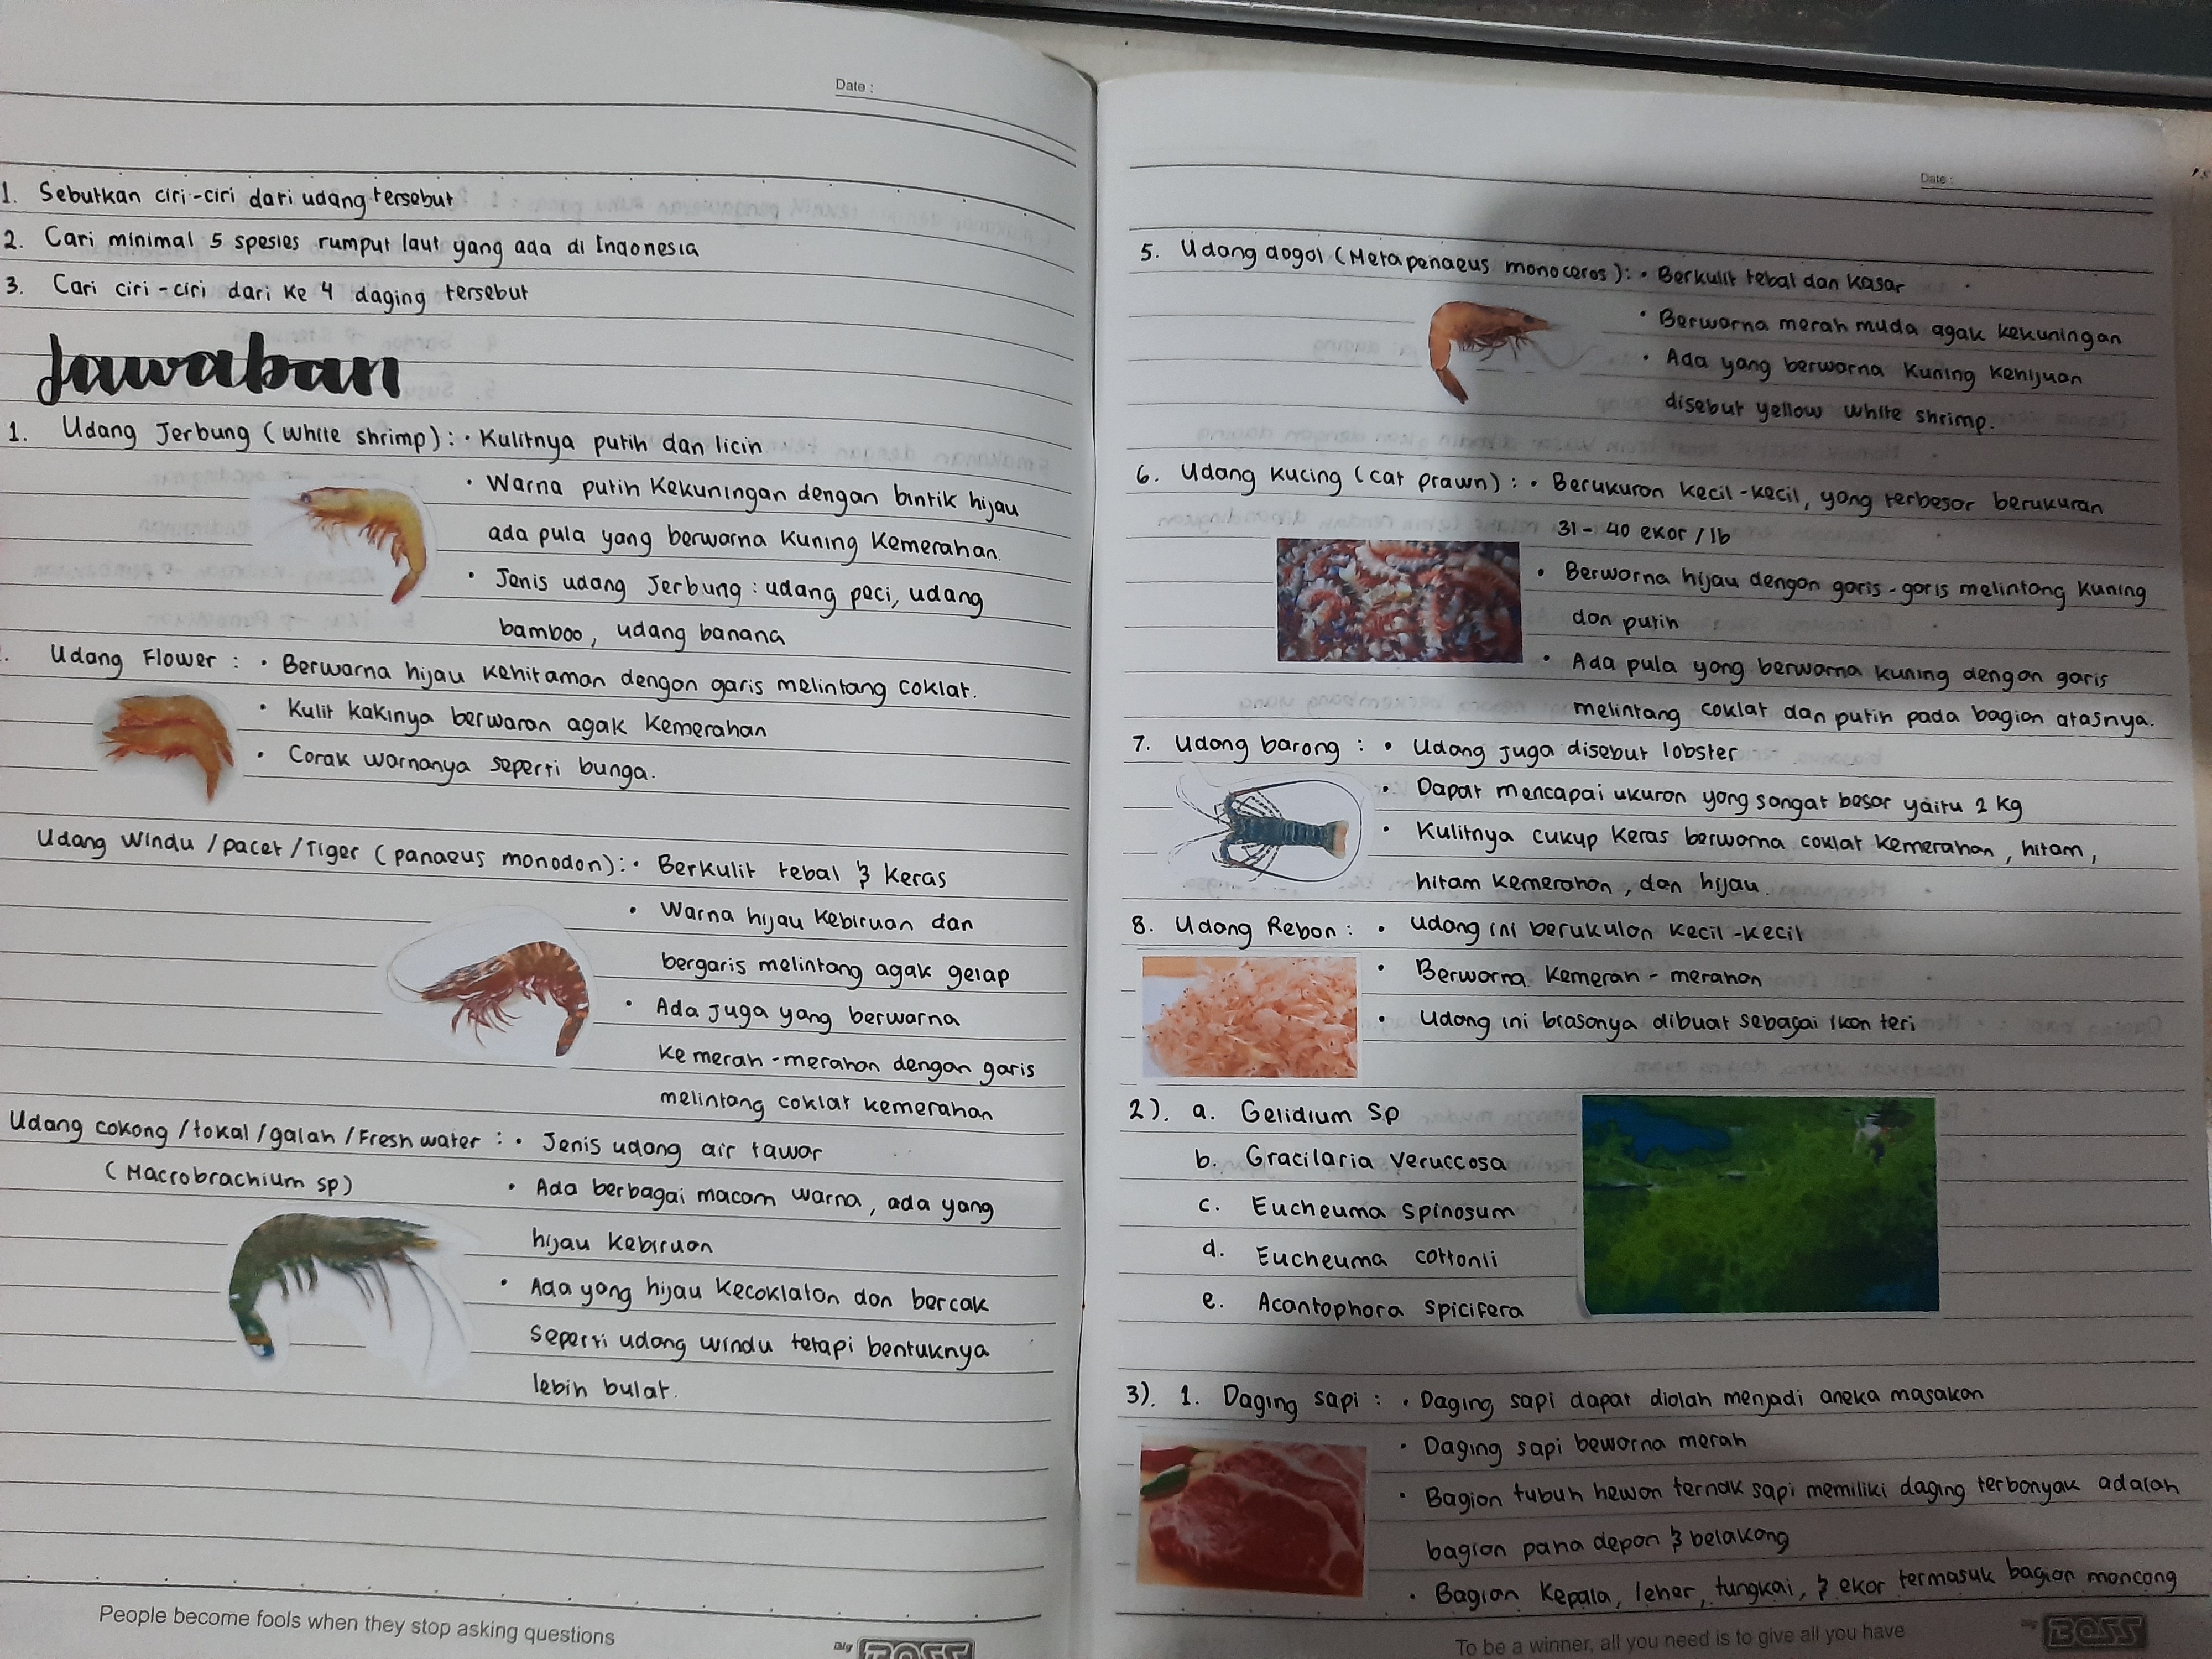 Date :
1. Sebutkan ciri-ciri dari udang tersebut
2. Cari minimal 5 spesies rumput laut yang ada di Indonesia
3. Cari ciri-ciri dari ke 4 daging tersebut
Jawaban
1. Udang Jerbung (white shrimp) : • Kulitnya putih dan licin
• Warna putih kekuningan dengan bintik hijau
ada pula yang berwarna kuning kemerahan.
• Jenis udang Jerbung : udang peci, udang
bamboo, udang banana
. Udang Flower : • Berwarna hijau kehitaman dengan garis melintang coklat.
• Kulit kakinya berwaran agak kemerahan
• Corak warnanya seperti bunga.
Udang windu / pacet / Tiger (panaeus monodon) : • Berkulit tebal & keras
• Warna hijau kebiruan dan
bergaris melintang agak gelap
• Ada juga yang berwarna
kemerah-merahan dengan garis
melintang coklat kemerahan
Udang cokong / tokal / galah / Fresh water : • Jenis udang air tawar
(Macrobrachium sp)
• Ada berbagai macam warna, ada yang
hijau kebiruan
• Ada yang hijau kecoklatan dan bercak
seperti udang windu tetapi bentuknya
lebih bulat.
People become fools when they stop asking questions
Big BOSS
Date :
5. Udang dogol (Metapenaeus monoceros) : • Berkulit tebal dan kasar
• Berwarna merah muda agak kekuningan
• Ada yang berwarna kuning kehijuan
disebut yellow white shrimp.
6. Udang kucing (cat prawn) : • Berukuran kecil-kecil, yang terbesar berukuran
31 - 40 ekor / lb
• Berwarna hijau dengan garis-garis melintang kuning
dan putih
• Ada pula yang berwarna kuning dengan garis
melintang coklat dan putih pada bagian atasnya.
7. Udang barong : • Udang juga disebut lobster
• Dapat mencapai ukuran yang sangat besar yaitu 2 kg
• Kulitnya cukup keras berwarna coklat kemerahan, hitam,
hitam kemerahan, dan hijau.
8. Udang Rebon : • udang ini berukulan kecil-kecil
• Berwarna kemerah - merahan
• Udang ini biasanya dibuat sebagai ikan teri
2). a. Gelidium sp
b. Gracilaria veruccosa
c. Eucheuma spinosum
d. Eucheuma cottonli
e. Acantophora spicifera
3). 1. Daging sapi : • Daging sapi dapat diolah menjadi aneka masakan
• Daging sapi beworna merah
• Bagian tubuh hewan ternak sapi memiliki daging terbanyak adalah
bagian paha depan & belakang
• Bagian kepala, leher, tungkai, & ekor termasuk bagian moncong
To be a winner, all you need is to give all you have
Big BOSS